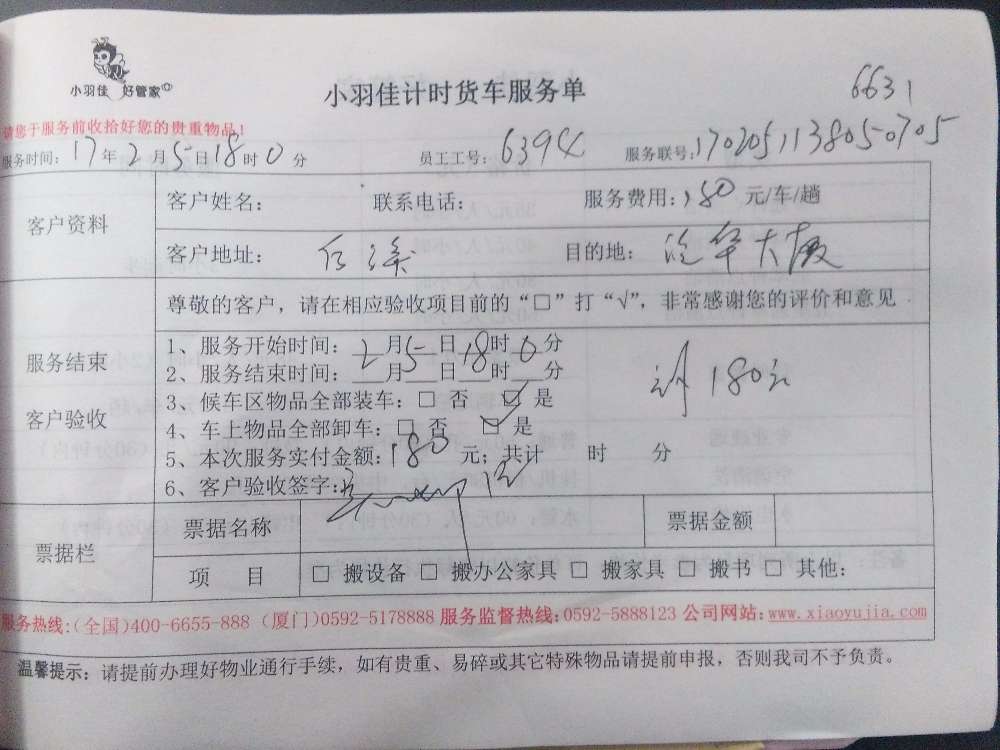 小羽佳 好管家
小羽佳计时货车服务单
6631
请您于服务前收拾好您的贵重物品！
服务时间：17年2月5日18时0分 员工工号：6394 服务联号：1702051138050705
客户资料
客户姓名： 联系电话： 服务费用：180元/车/趟
客户地址： 目的地：华大厦
尊敬的客户，请在相应验收项目前的“□”打“√”，非常感谢您的评价和意见
服务结束
客户验收
1、服务开始时间：2月5日18时0分
2、服务结束时间：__月__日__时__分
3、候车区物品全部装车：□ 否 ☑ 是
4、车上物品全部卸车：□ 否 ☑ 是
5、本次服务实付金额：180元；共计 时 分
6、客户验收签字：
180元
票据栏
票据名称 票据金额
项 目 □ 搬设备 □ 搬办公家具 □ 搬家具 □ 搬书 □ 其他：
服务热线：(全国)400-6655-888 (厦门)0592-5178888 服务监督热线：0592-5888123 公司网站：www.xiaoyujia.com
温馨提示：请提前办理好物业通行手续，如有贵重、易碎或其它特殊物品请提前申报，否则我司不予负责。